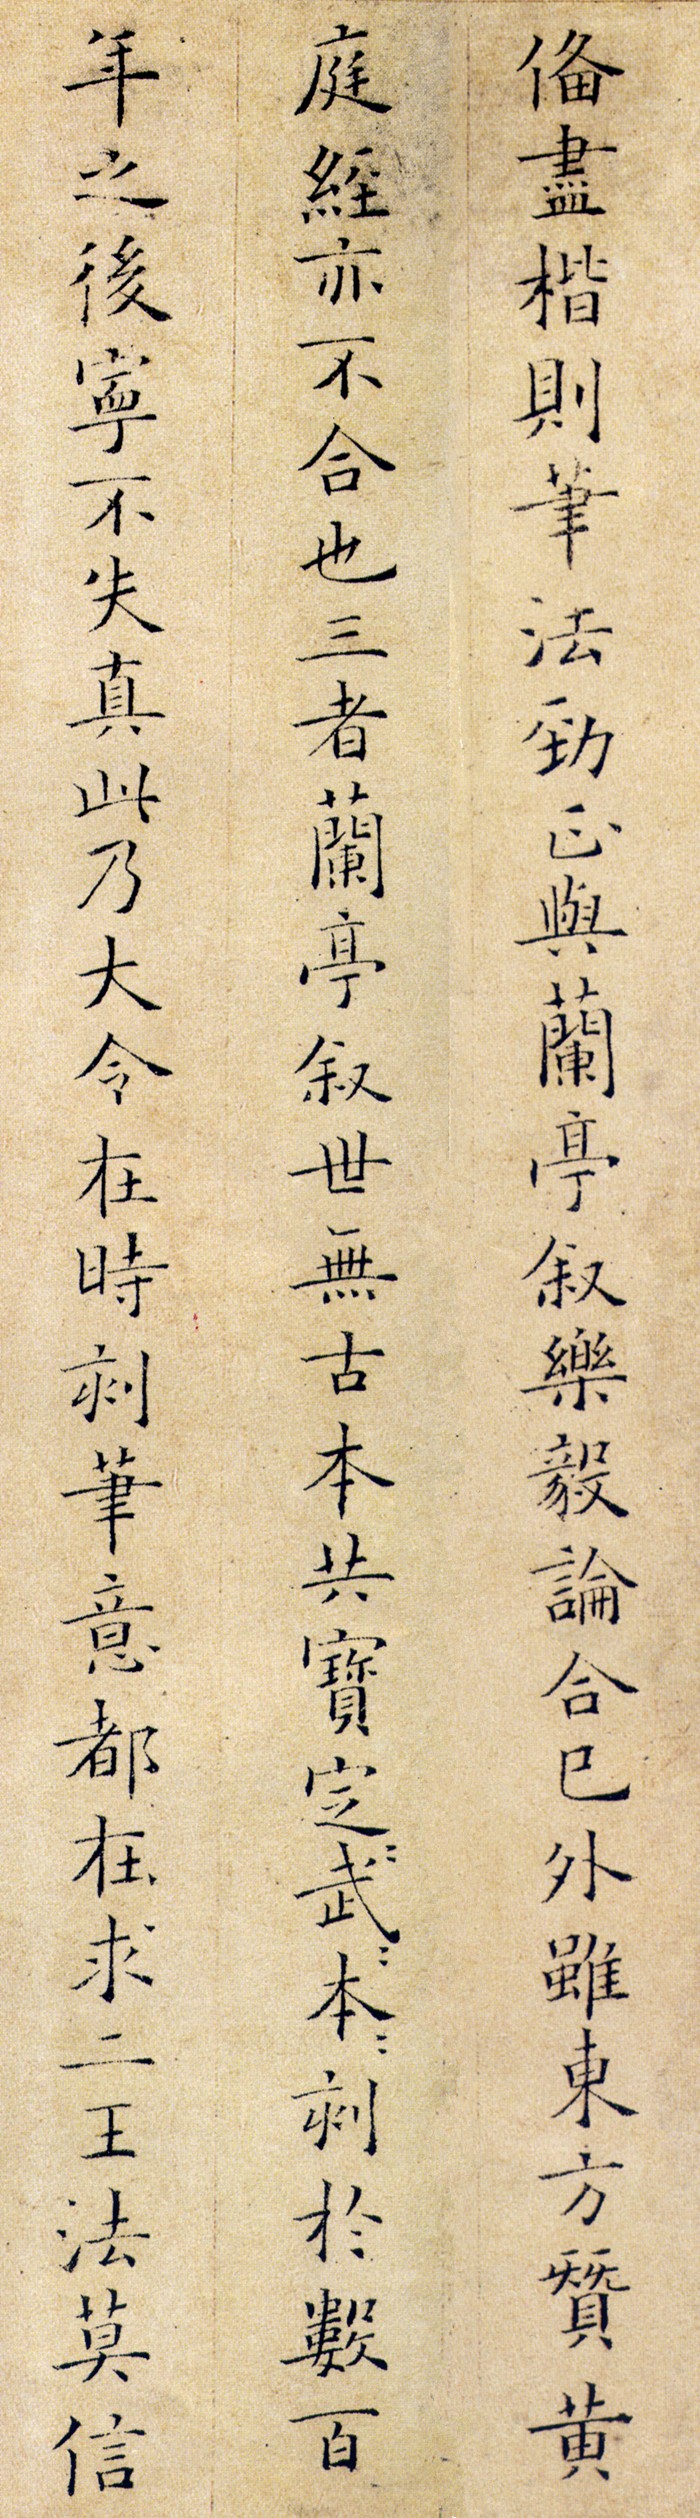 俻盡楷則筆法勁正與蘭亭叙樂毅論合已外雖東方贊黄
庭經亦不合也三者蘭亭叙世無古本共寶定〻武〻本〻刻於數百
年之後寧不失真此乃大令在時刻筆意都在求二王法莫信